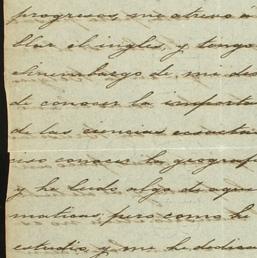 progresos, me atrevo á
blar el ingles, y tengo
sin embargo de, me des
de conocer la importa
de las ciencias exactas
uso conocer la geograf
y he leido algo de aque
maticas, pero como he
estudio, y me he dedica